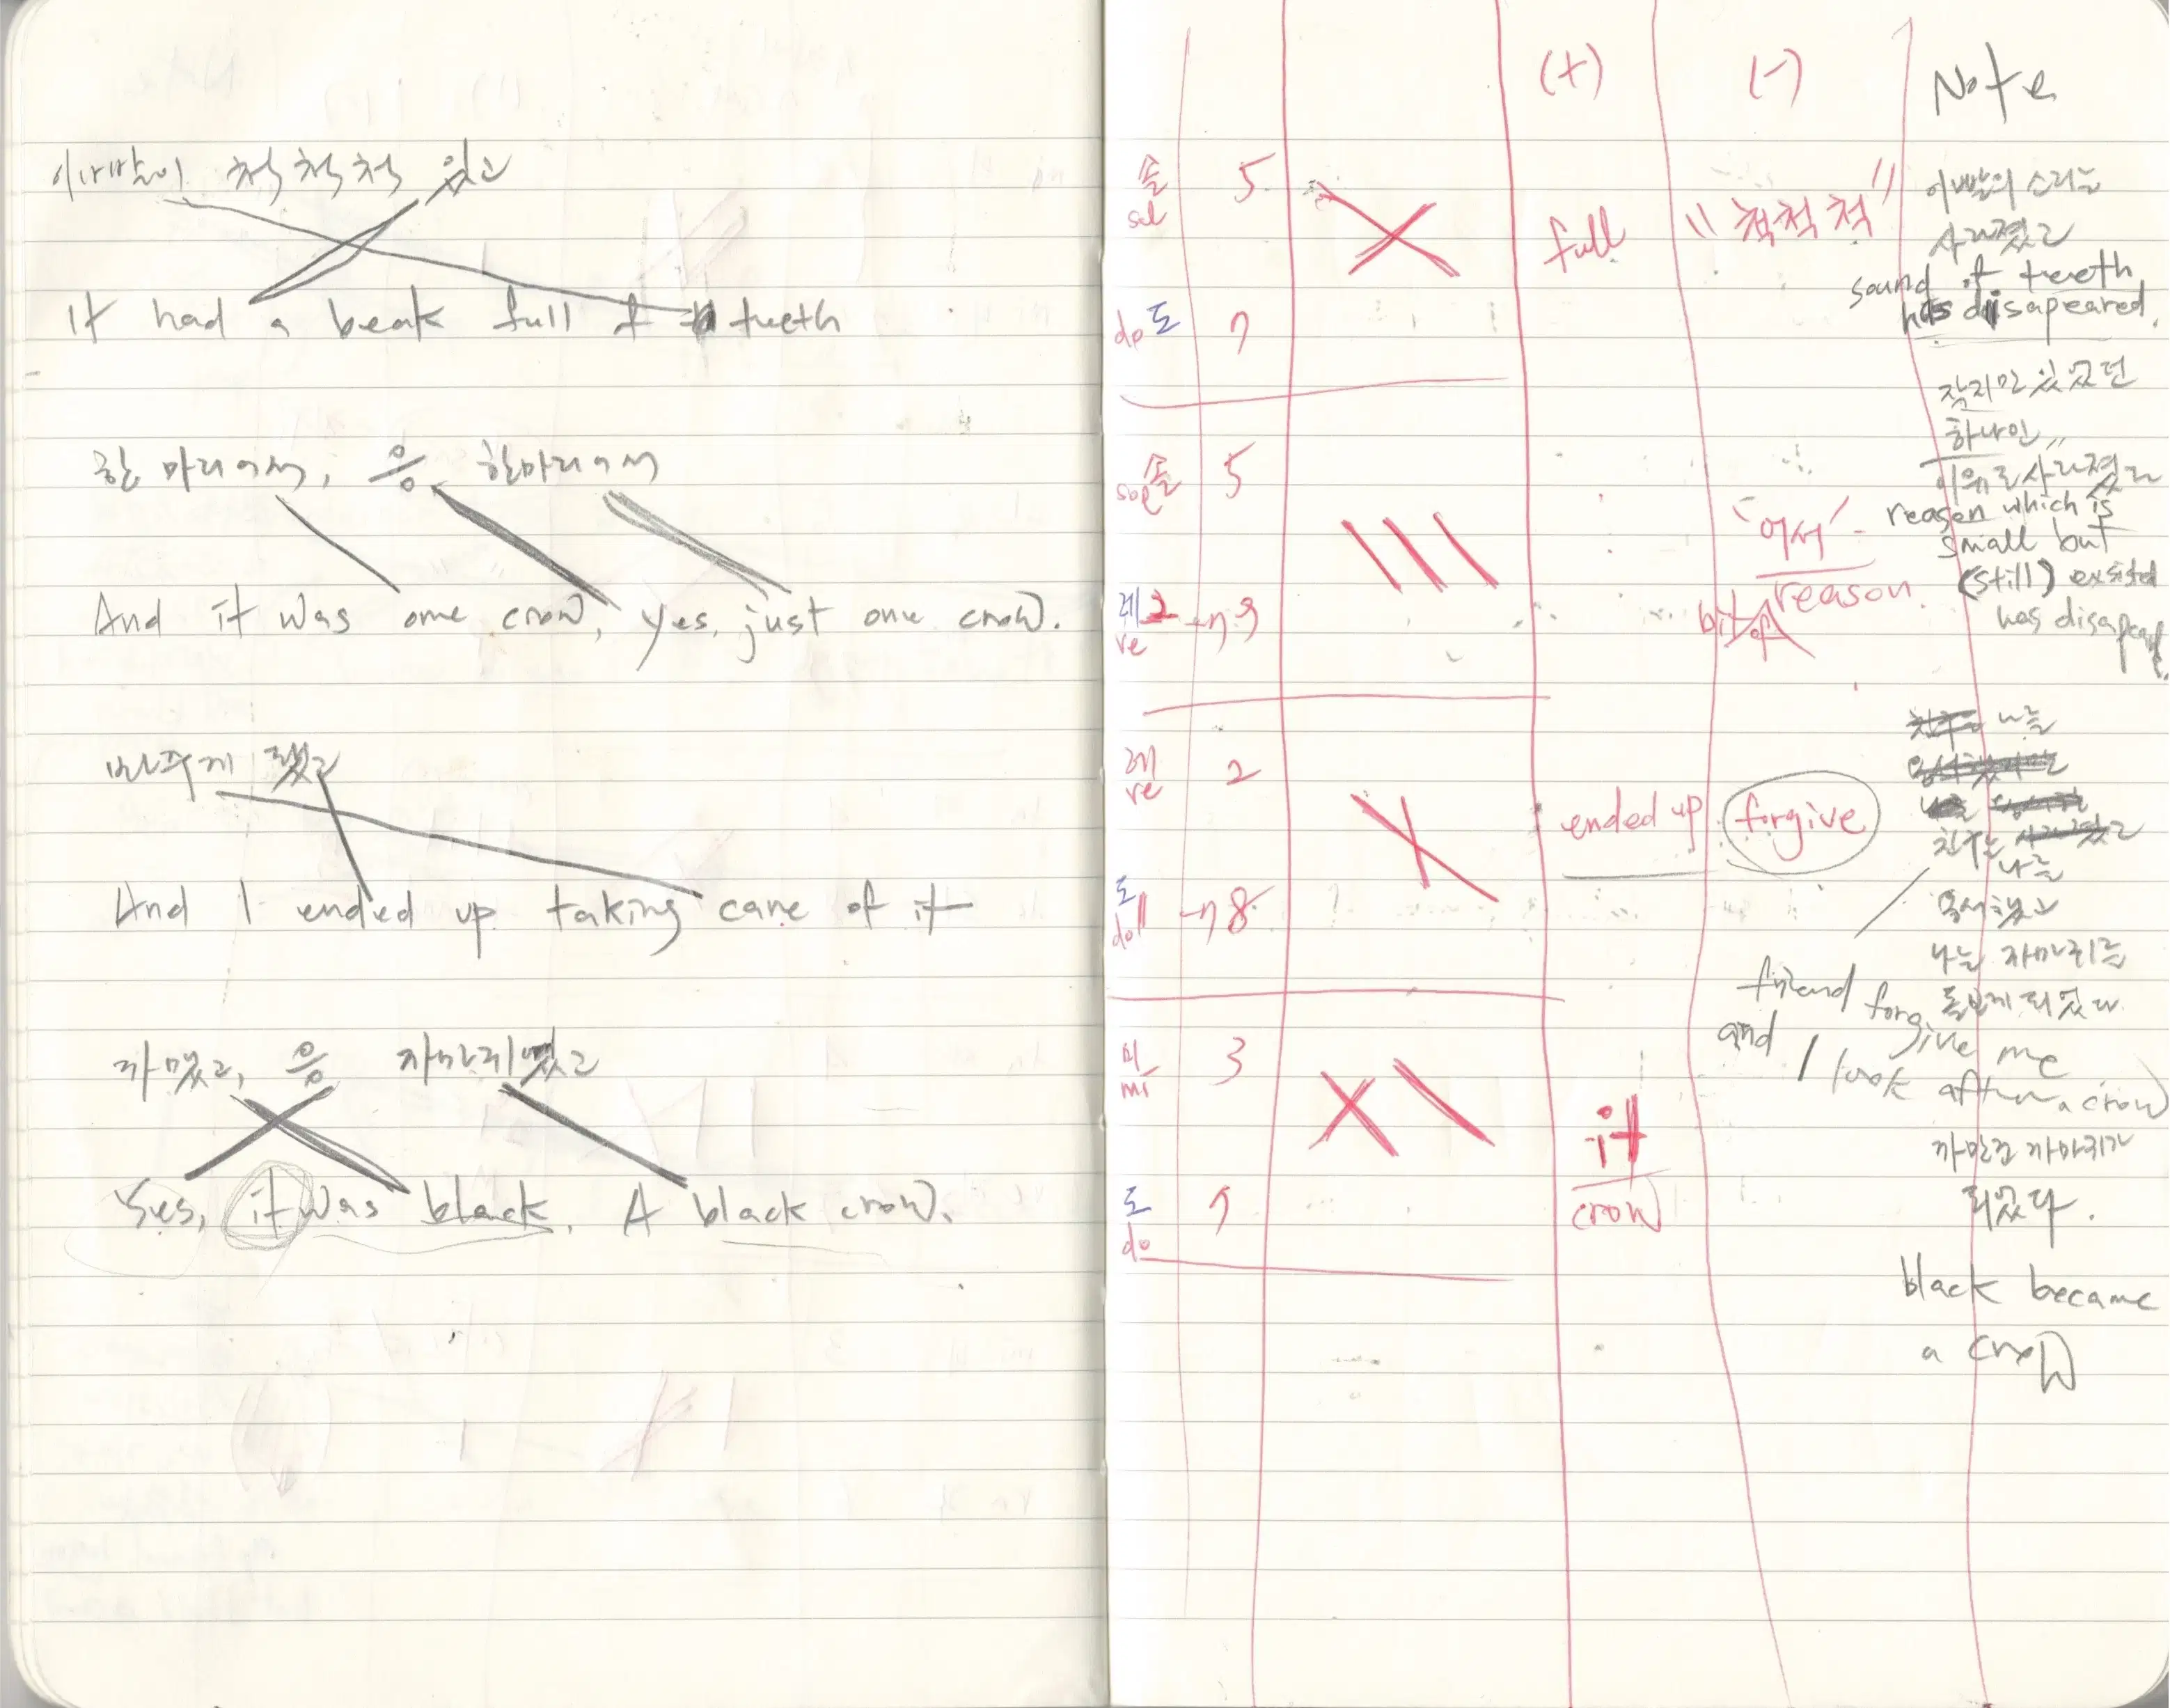 이빨이 척척척 있고
It had a beak full of teeth
한 마리여서, 응 한마리여서
And it was one crow, yes, just one crow.
바꾸게 됐고
And I ended up taking care of it
까맸고, 응 까마귀였고
Yes, it was black. A black crow.
(+) (-) Note
솔 5
sol
full "척척척"
이빨의 소리는
사라졌고
sound of teeth
has disapeared.
do 도 7
작지만 있었던
하나인
이유로 사라졌고
솔 5
'여서'
reason
bit of
reason which is
small but
(still) exsisted
has disapear
레 2 → 9
re
레 2
re
ended up forgive
나를
친구는
나를
용서했고
나는 까마귀를
돌보게 되었다
friend forgive me
and I look after a crow
도 → 8
do
미 3
mi
it
crow
까만건 까마귀가
되었다.
도 7
do
black became
a crow